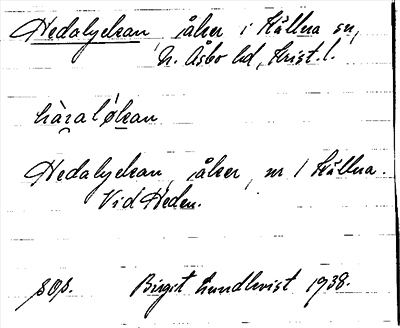 Hedalyckan, åker i Källna sn,
N. Åsbo hd, Krist. l.
hàʒalókan
Hedalyckan, åker, nr 1 Källna.
Vid Heden.
sop. Birgit Lundkvist 1938.